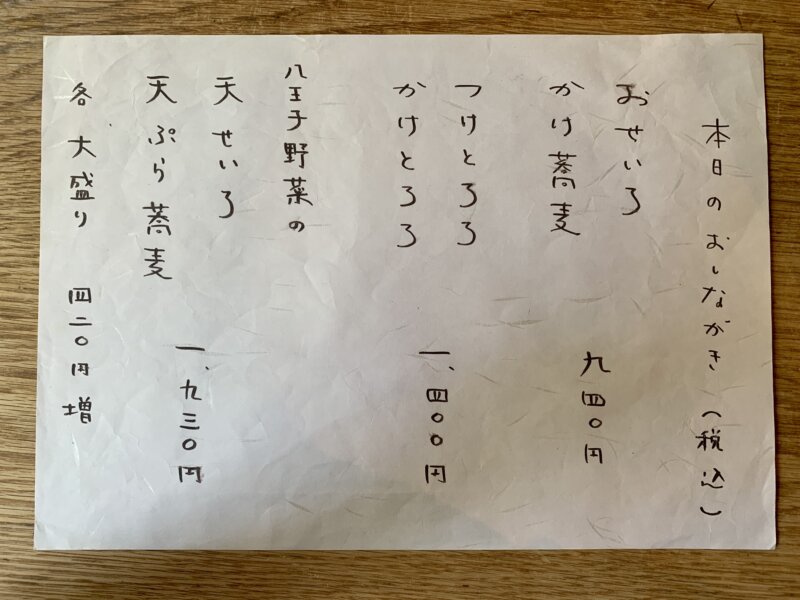 本日のおしながき（税込）
おせいろ
かけ蕎麦
九四〇円
つけとろろ
かけとろろ
一、四〇〇円
八王子野菜の
天せいろ
天ぷら蕎麦
一、九三〇円
各大盛り 四二〇円増